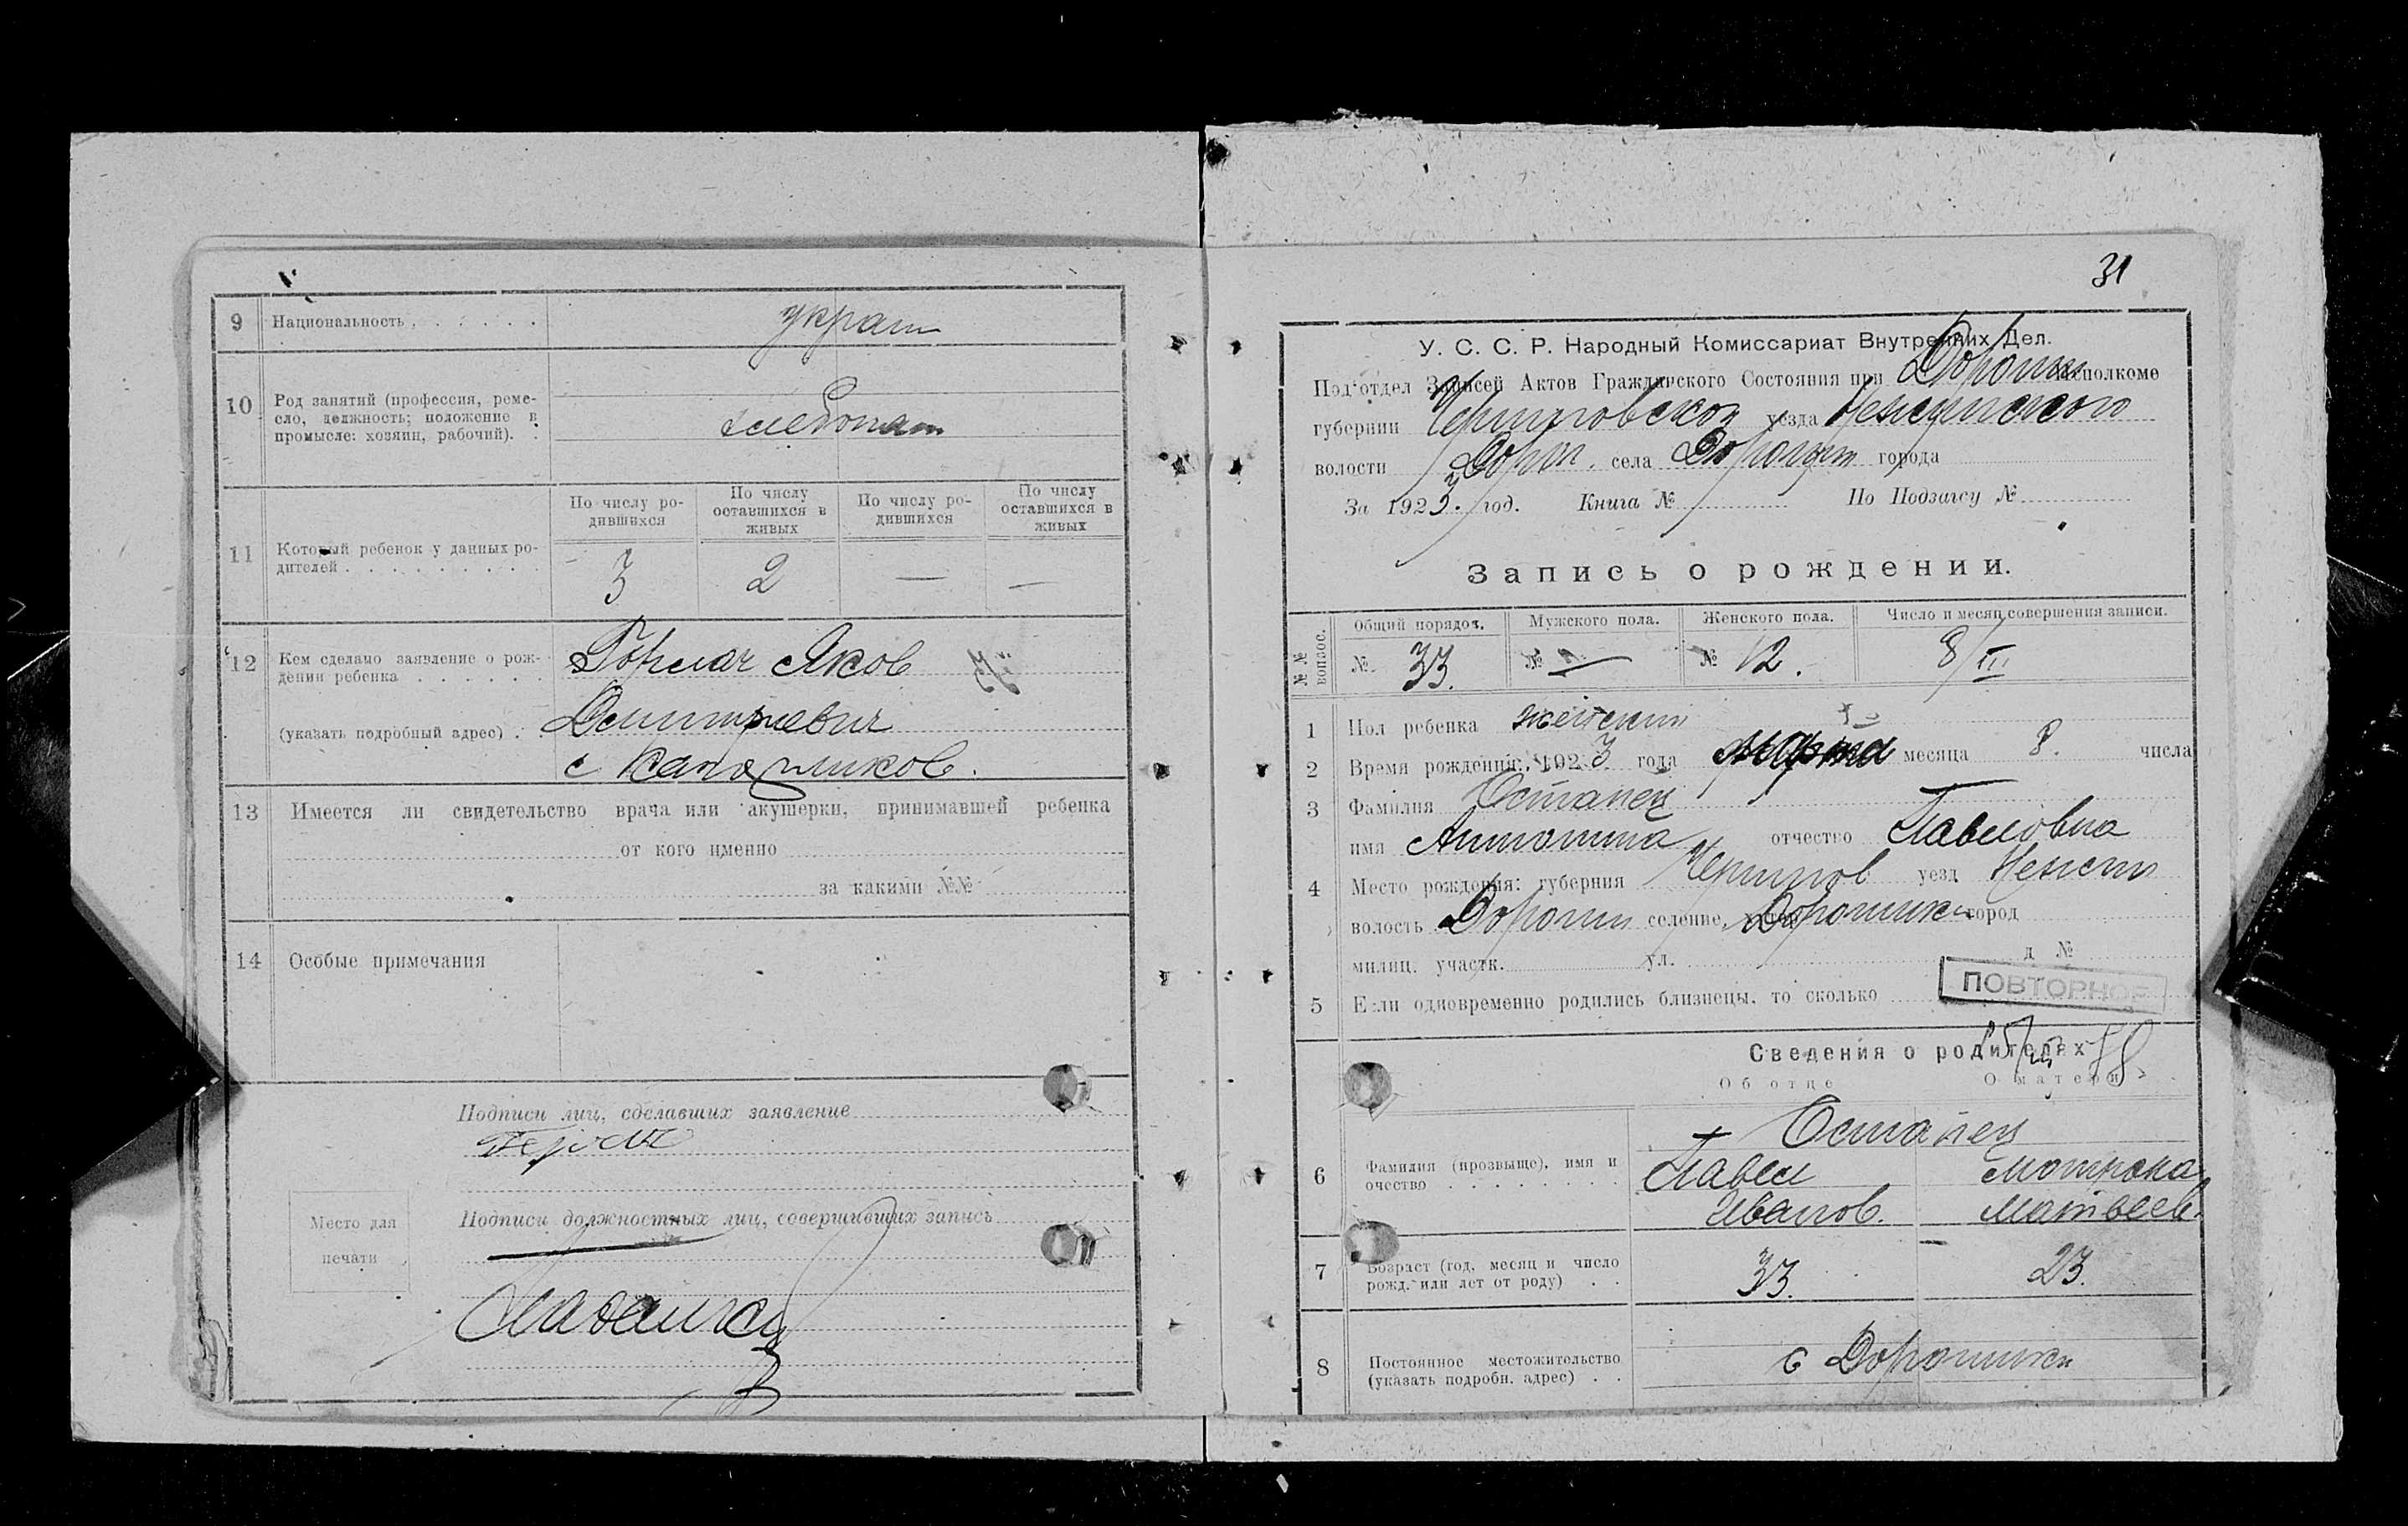 9 Национальность
украин
10 Род занятий (профессия, реме-
сло, должность; положение в
промысле: хозяин, рабочий).
хлебопаш
По числу ро-
дившихся
По числу
оставшихся в
живых
По числу ро-
дившихся
По числу
оставшихся в
живых
11 Который ребенок у данных ро-
дителей
3 2 — —
12 Кем сделано заявление о рож-
дении ребенка
Яков
(указать подробный адрес)
Дмитриевич
с
13 Имеется ли свидетельство врача или акушерки, принимавшей ребенка
от кого именно
за какими №№
14 Особые примечания
Подписи лиц, сделавших заявление
Подписи должностных лиц, совершивших запись
Место для
печати
31
У. С. С. Р. Народный Комиссариат Внутренних Дел.
Под'отдел Записей Актов Гражданского Состояния при Дорогин Исполкоме
губернии Черниговской уезда Нежинского
волости Дорог. села города
За 1923. год. Книга № По Подзагсу №
Запись о рождении.
№№ вопрос.
Общий порядок. Мужского пола. Женского пола. Число и месяц совершения записи.
№ 33. № — № 12. 8/III
1 Пол ребенка женский
2 Время рождения: 1923 года Марта месяца 8. числа
3 Фамилия Остапец
имя Антонина отчество Павловна
4 Место рождения: губерния Чернигов уезд Нежин
волость Дорогин селение, хутор город
милиц. участк. ул. д №
5 Если одновременно родились близнецы, то сколько
ПОВТОРНОЕ
Сведения о родителях
Об отце О матери
Остапец
6 Фамилия (прозвыще), имя и
очество
Павел Мотрона
Иванов. Матвеев.
7 Возраст (год, месяц и число
рожд. или лет от роду)
33. 23.
8 Постоянное местожительство
(указать подробн. адрес)
с